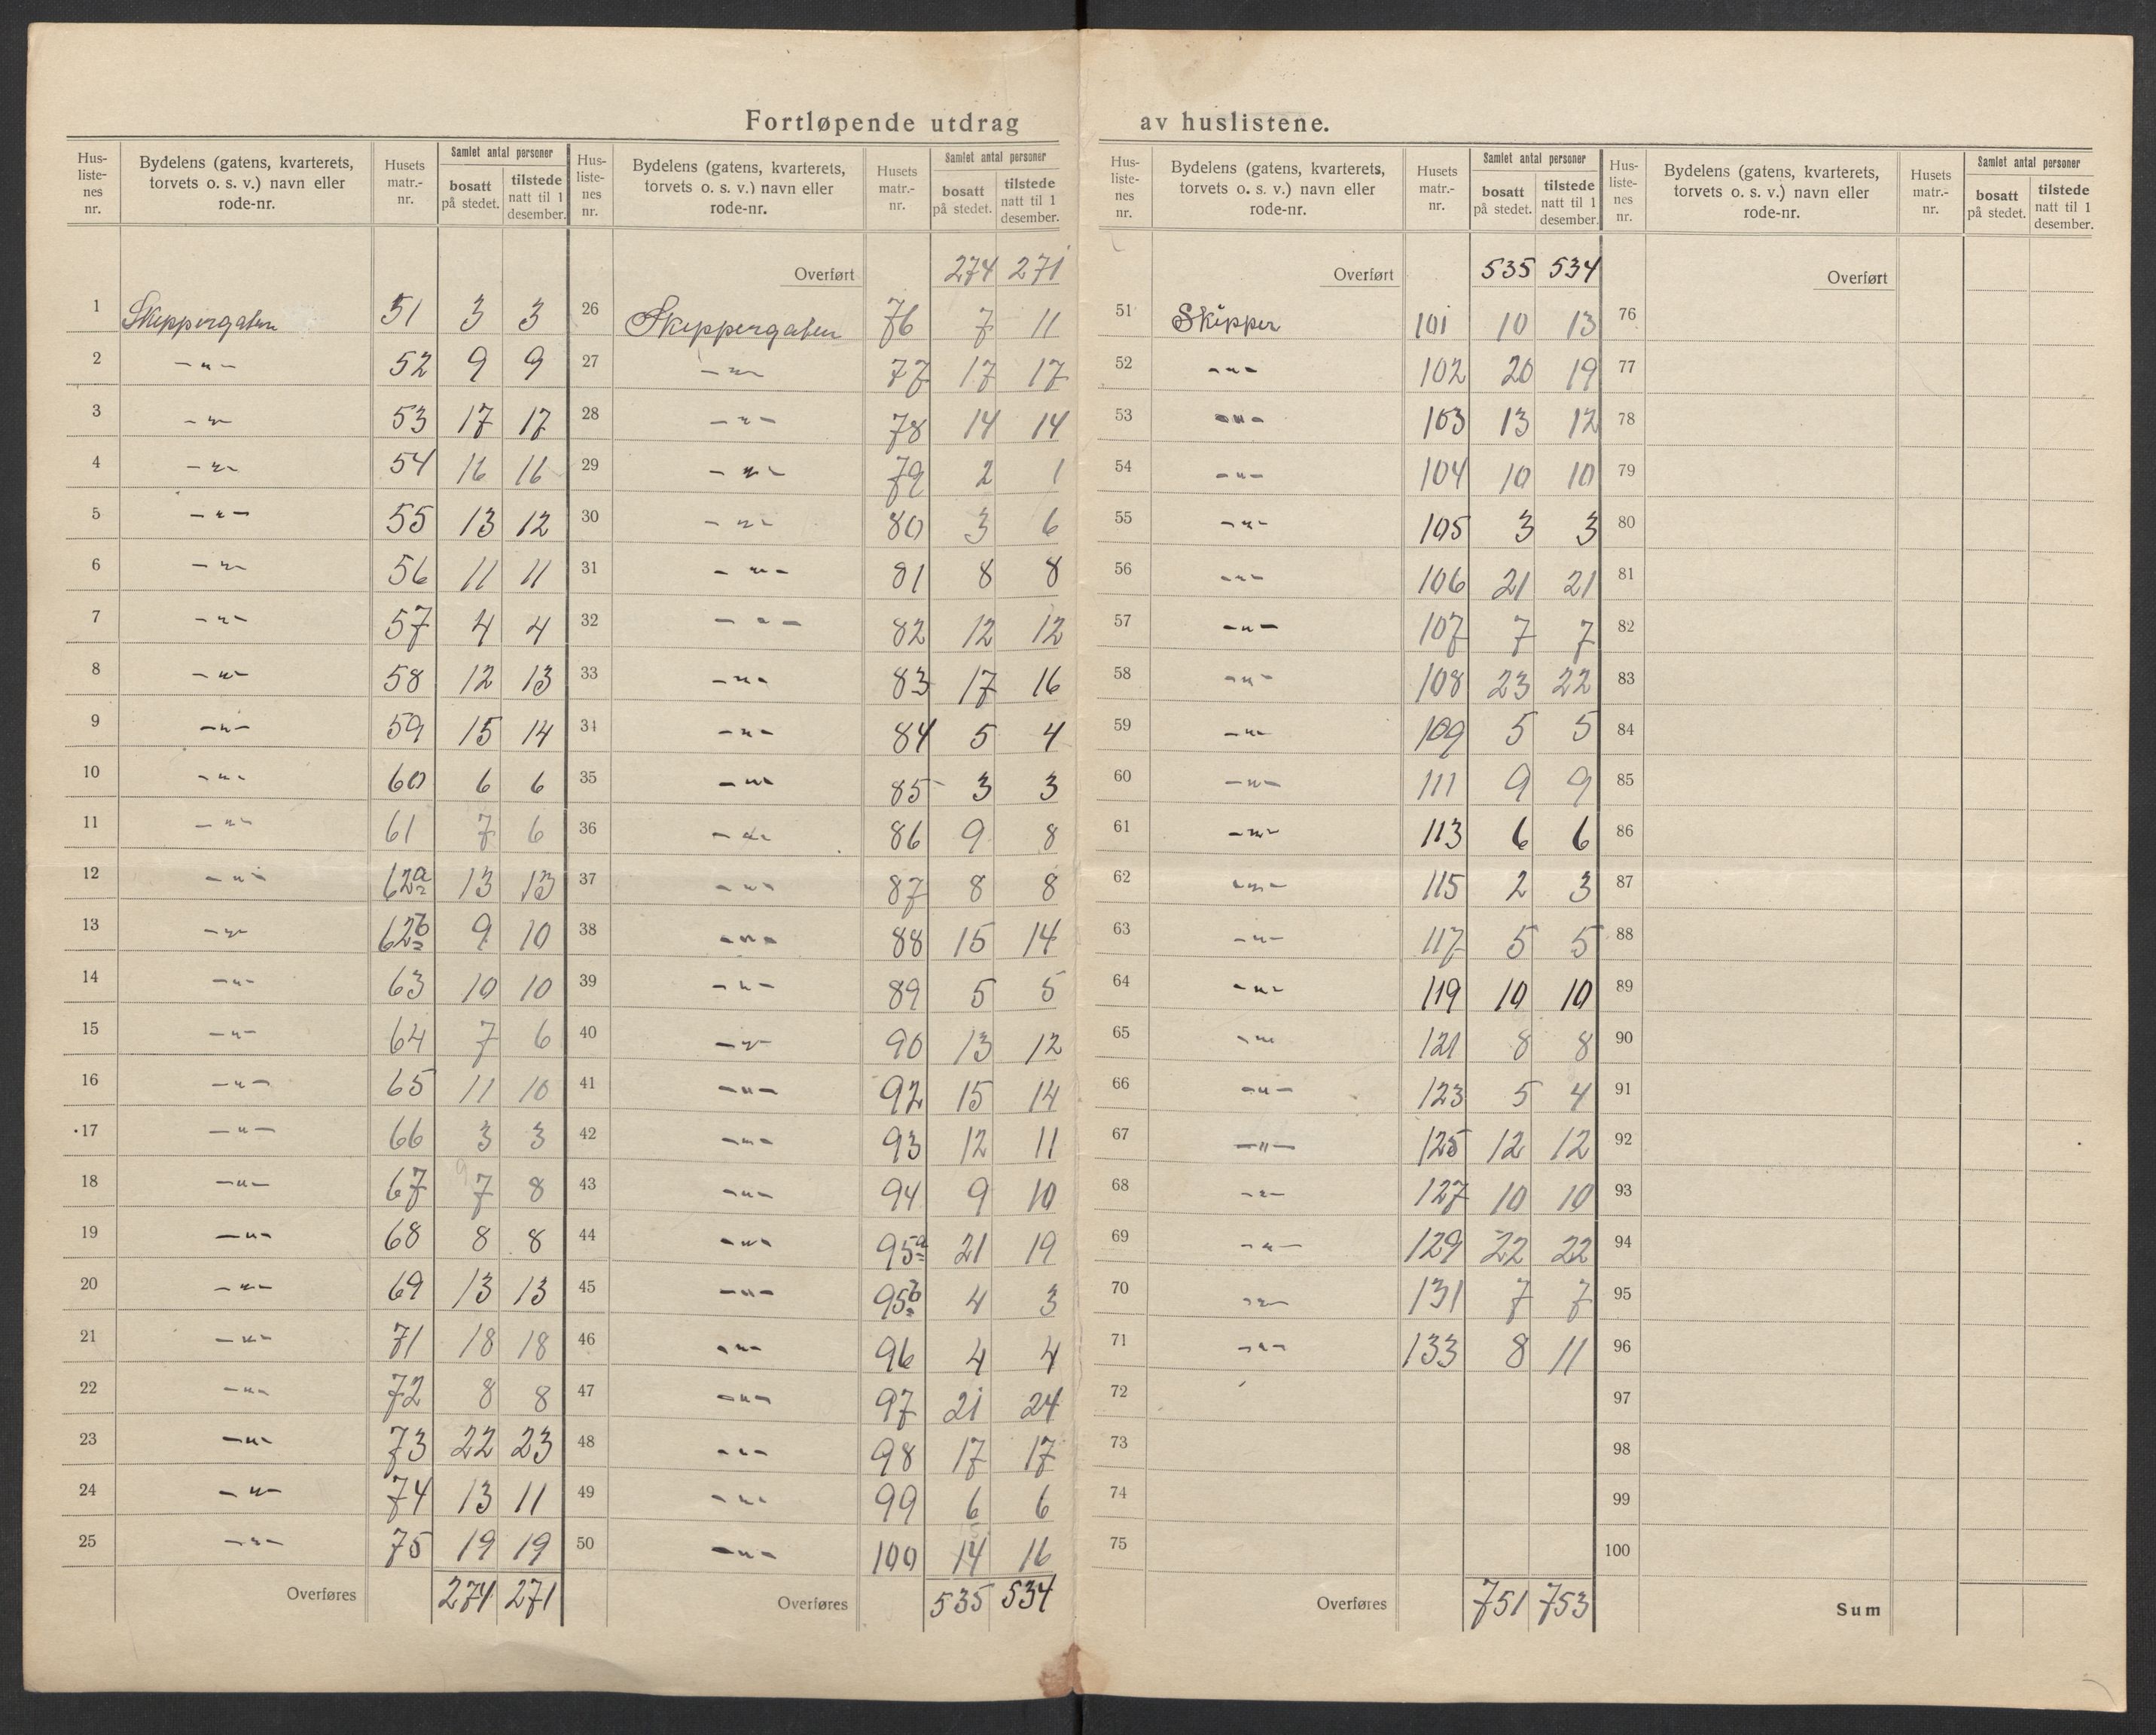 Fortløpende utdrag av huslistene.
Hus-listenes nr. Bydelens (gatens, kvarterets, torvets o. s. v.) navn eller rode-nr. Husets matr.-nr. Samlet antal personer bosatt på stedet. tilstede natt til 1 desember.
1 Skippergaten 51 3 3
2 -"- 52 9 9
3 -"- 53 17 17
4 -"- 54 16 16
5 -"- 55 13 12
6 -"- 56 11 11
7 -"- 57 4 4
8 -"- 58 12 13
9 -"- 59 15 14
10 -"- 60 6 6
11 -"- 61 7 6
12 -"- 62a 13 13
13 -"- 62b 9 10
14 -"- 63 10 10
15 -"- 64 7 6
16 -"- 65 11 10
17 -"- 66 3 3
18 -"- 67 7 8
19 -"- 68 8 8
20 -"- 69 13 13
21 -"- 71 18 18
22 -"- 72 8 8
23 -"- 73 22 23
24 -"- 74 13 11
25 -"- 75 19 19
Overføres 274 271
Hus-listenes nr. Bydelens (gatens, kvarterets, torvets o. s. v.) navn eller rode-nr. Husets matr.-nr. Samlet antal personer bosatt på stedet. tilstede natt til 1 desember.
Overført 274 271
26 Skippergaten 76 7 11
27 -"- 77 17 17
28 -"- 78 14 14
29 -"- 79 2 1
30 -"- 80 3 6
31 -"- 81 8 8
32 -"- 82 12 12
33 -"- 83 17 16
34 -"- 84 5 4
35 -"- 85 3 3
36 -"- 86 9 8
37 -"- 87 8 8
38 -"- 88 15 14
39 -"- 89 5 5
40 -"- 90 13 12
41 -"- 92 15 14
42 -"- 93 12 11
43 -"- 94 9 10
44 -"- 95a 21 19
45 -"- 95b 4 3
46 -"- 96 4 4
47 -"- 97 21 24
48 -"- 98 17 17
49 -"- 99 6 6
50 -"- 100 14 16
Overføres 535 534
Hus-listenes nr. Bydelens (gatens, kvarterets, torvets o. s. v.) navn eller rode-nr. Husets matr.-nr. Samlet antal personer bosatt på stedet. tilstede natt til 1 desember.
Overført 535 534
51 Skipper 101 10 13
52 -"- 102 20 19
53 -"- 103 13 12
54 -"- 104 10 10
55 -"- 105 3 3
56 -"- 106 21 21
57 -"- 107 7 7
58 -"- 108 23 22
59 -"- 109 5 5
60 -"- 111 9 9
61 -"- 113 6 6
62 -"- 115 2 3
63 -"- 117 5 5
64 -"- 119 10 10
65 -"- 121 8 8
66 -"- 123 5 4
67 -"- 125 12 12
68 -"- 127 10 10
69 -"- 129 22 22
70 -"- 131 7 7
71 -"- 133 8 11
72
73
74
75
Overføres 751 753
Hus-listenes nr. Bydelens (gatens, kvarterets, torvets o. s. v.) navn eller rode-nr. Husets matr.-nr. Samlet antal personer bosatt på stedet. tilstede natt til 1 desember.
Overført
76
77
78
79
80
81
82
83
84
85
86
87
88
89
90
91
92
93
94
95
96
97
98
99
100
Sum